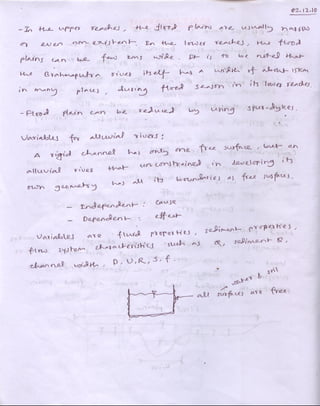 02.12.10
- In the upper reaches, the flood plains are usually narrow
or even non existent. In the lower reaches, the flood
plains can be few kms wide. It is to be noted that
the Brahmaputra river itself has a width of about 15km
in many places, during flood season in its lower reaches.
- Flood plain can be reduced by using spur-dykes.
Variables for alluvial rivers:
A rigid channel has only one free surface, but an
alluvial river that un constrained in developing its
own geometry has all its boundaries as free surfaces.
- Independent : cause
- Dependent : effect
Variables are fluid properties, sediment properties,
flow system characteristics such as Q, sediment Q,
channel width, D, U, R, S, f.
water & soil
all surfaces are free.